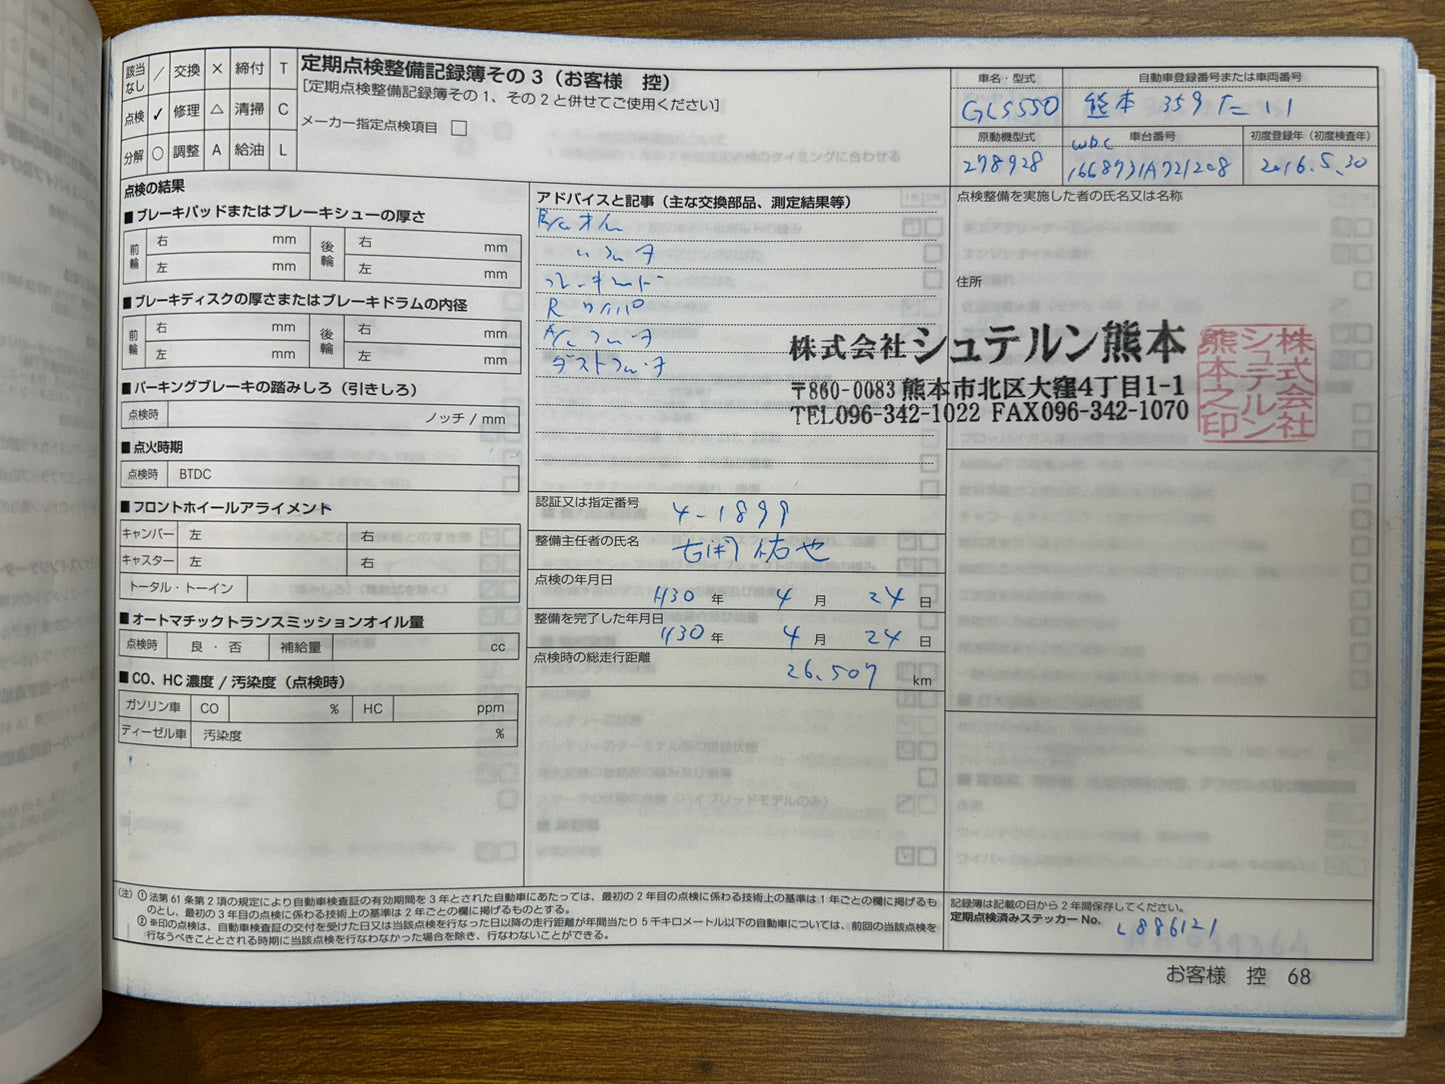 該当なし ／ 交換 × 締付 T
点検 ✓ 修理 △ 清掃 C
分解 ○ 調整 A 給油 L
定期点検整備記録簿その3（お客様 控）
［定期点検整備記録簿その1、その2と併せてご使用ください］
メーカー指定点検項目 □
車名・型式
GLS550
自動車登録番号または車両番号
熊本 359 た 11
原動機型式
278928
車台番号
WDC
1668731A721208
初度登録年（初度検査年）
2016.5.30
点検の結果
■ ブレーキパッドまたはブレーキシューの厚さ
前輪 右 mm 後輪 右 mm
左 mm 左 mm
■ ブレーキディスクの厚さまたはブレーキドラムの内径
前輪 右 mm 後輪 右 mm
左 mm 左 mm
■ パーキングブレーキの踏みしろ（引きしろ）
点検時 ノッチ / mm
■ 点火時期
点検時 BTDC
■ フロントホイールアライメント
キャンバー 左 右
キャスター 左 右
トータル・トーイン
■ オートマチックトランスミッションオイル量
点検時 良・否 補給量 cc
■ CO、HC 濃度 / 汚染度（点検時）
ガソリン車 CO % HC ppm
ディーゼル車 汚染度 %
アドバイスと記事（主な交換部品、測定結果等）
R ワイパ
A/C フィルタ
ダストフィルタ
認証又は指定番号
4-1899
整備主任者の氏名
祐也
点検の年月日
H30 年 4 月 24 日
整備を完了した年月日
H30 年 4 月 24 日
点検時の総走行距離
26,507 km
点検整備を実施した者の氏名又は名称
住所
株式会社シュテルン熊本
〒860-0083 熊本市北区大窪4丁目1-1
TEL096-342-1022 FAX096-342-1070
株式会社シュテルン熊本之印
（注）① 法第 61 条第 2 項の規定により自動車検査証の有効期間を 3 年とされた自動車にあたっては、最初の 2 年目の点検に係わる技術上の基準は 1 年ごとの欄に掲げるも
のとし、最初の 3 年目の点検に係わる技術上の基準は 2 年ごとの欄に掲げるものとする。
② ※印の点検は、自動車検査証の交付を受けた日又は当該点検を行なった日以降の走行距離が年間当たり 5 千キロメートル以下の自動車については、前回の当該点検を
行なうべきこととされる時期に当該点検を行なわなかった場合を除き、行なわないことができる。
記録簿は記載の日から 2 年間保存してください。
定期点検済みステッカー No.
L886121
お客様 控 68